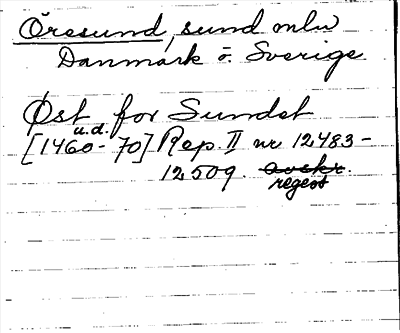 Öresund, sund mln
Danmark o. Sverige
Øst for Sundet
u.d.
[1460-70] Rep. II nr 12483-
12509. avskr.
regest